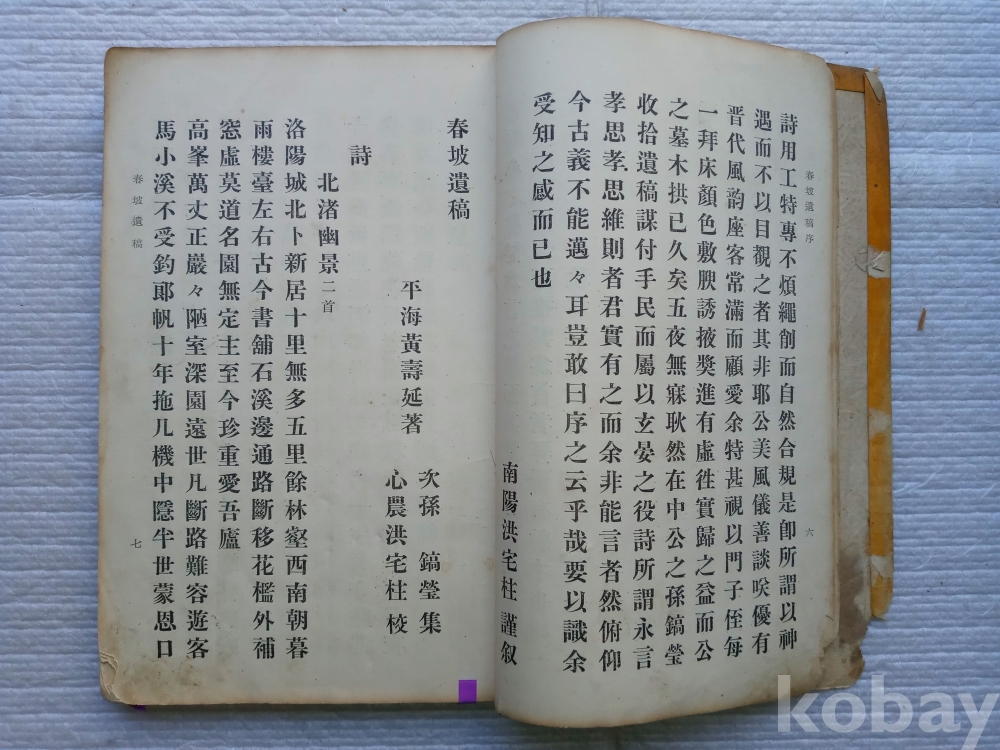 春坡遺稿序
詩用工特專不煩繩削而自然合規是卽所謂以神
遇而不以目觀之者其非耶公美風儀善談咲優有
晋代風韵座客常滿而顧愛余特甚視以門子侄每
一拜床顏色敷腴誘掖奬進有虛徃實歸之益而公
之墓木拱已久矣五夜無寐耿然在中公之孫鎬瑩
收拾遺稿謀付手民而屬以玄晏之役詩所謂永言
孝思孝思維則者君實有之而余非能言者然俯仰
今古義不能邁々耳豈敢曰序之云乎哉要以識余
受知之感而已也
南陽洪宅柱謹叙
六
春坡遺稿
平海黃壽延著
次孫 鎬瑩集
心農洪宅柱校
詩
北渚幽景二首
洛陽城北卜新居十里無多五里餘林壑西南朝暮
雨樓臺左右古今書舖石溪邊通路斷移花檻外補
窓虛莫道名園無定主至今珍重愛吾廬
高峯萬丈正巖々陋室深園遠世凡斷路難容遊客
馬小溪不受釣郞帆十年拖几機中隱半世蒙恩口
春坡遺稿
七
kobay